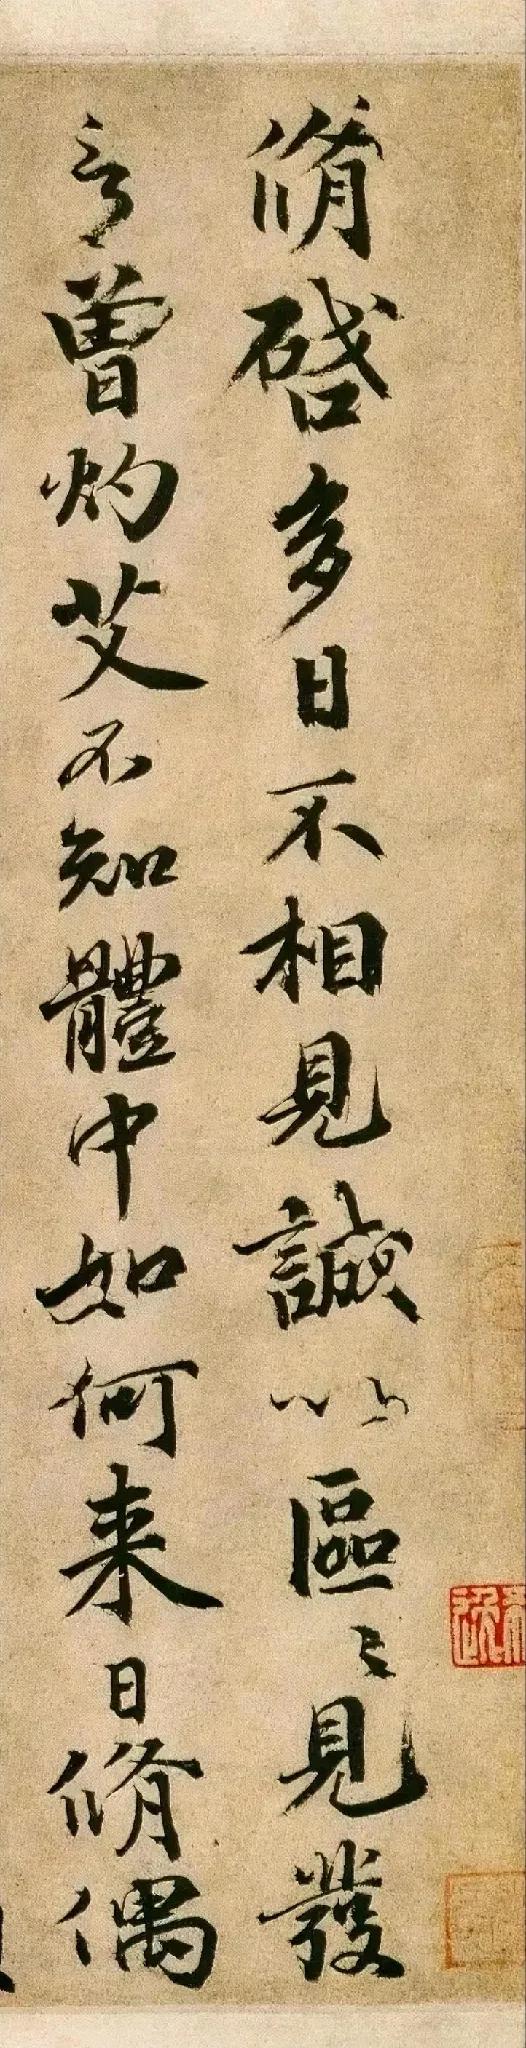 脩啓多日不相見誠以區〻見發
言曾灼艾不知體中如何来日脩偶